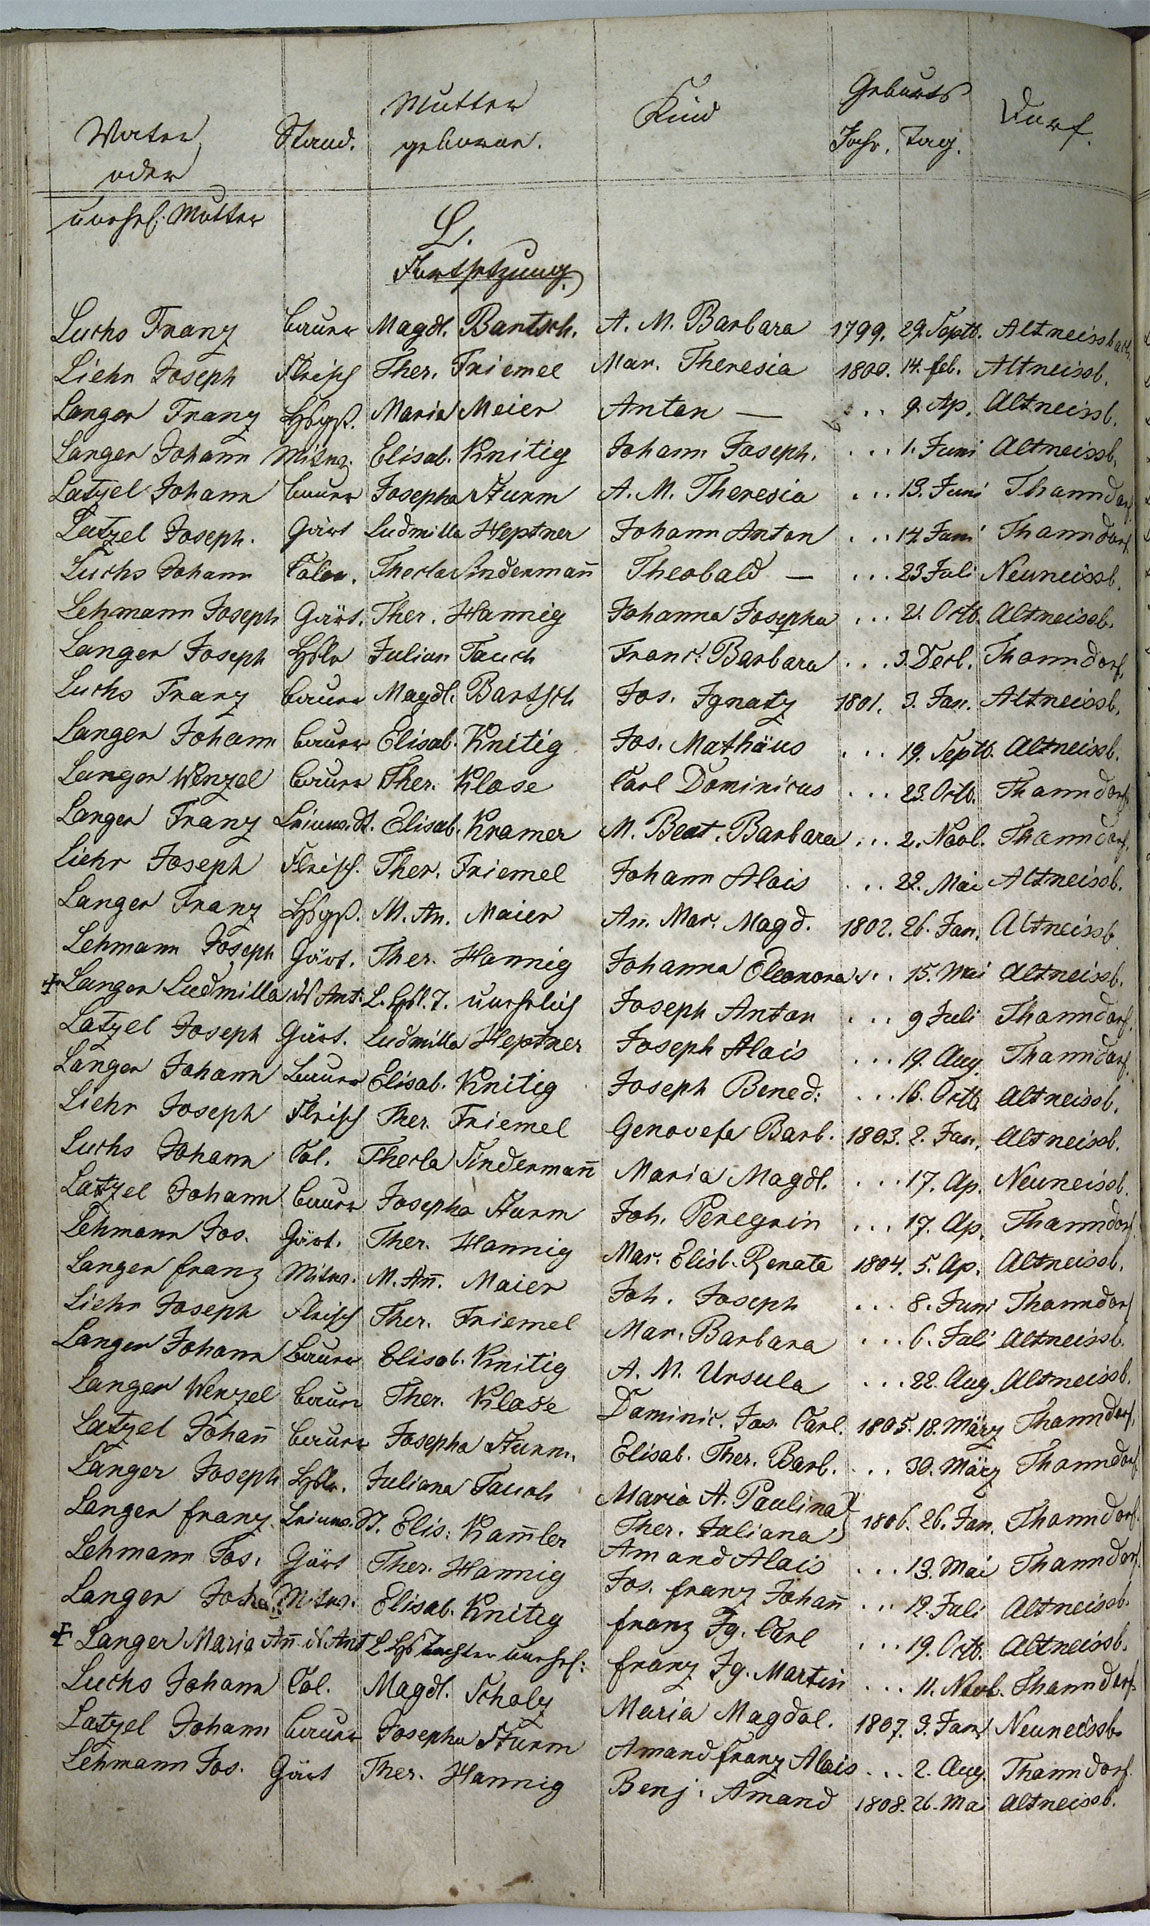 Vater Stand. Mutter Kind Geburts Dorf.
oder geborne. Jahr. Tag.
unehel. Mutter
L.
Fortsetzung.
Luchs Franz Bauer Magdl. Bartsch. A. M. Barbara 1799. 29. Septb. Altneissbach.
Liehr Joseph Fleisch Ther. Friemel Mar. Theresia 1800. 14. feb. Altneissb.
Langer Franz Maria Meier Anton — ... 9. Ap. Altneissb.
Langer Johann Mitw. Elisab. Knitig Johann Joseph. ... 1. Juni Altneissb.
Latzel Johann Bauer Josepha Sturm A. M. Theresia ... 13. Juni Thanndorf
Latzel Joseph. Gärt Ludmilla Heptner Johann Anton ... 14. Juni Thanndorf.
Luchs Johann Colon. Thecla Sindermañ Theobald — ... 23 Juli Neuneissb.
Lehmann Joseph Gärt. Ther. Hannig Johanna Josepha ... 21. Octb. Altneissb.
Langer Joseph Hslr Julian Tauch Franc. Barbara ... 3. Decb. Thanndorf.
Luchs Franz Bauer Magdl. Bartsch Jos. Ignatz 1801. 3. Jan. Altneissb.
Langer Johann Bauer Elisab. Knitig Jos. Mathäus ... 19. Septb. Altneissb.
Langer Wenzel Bauer Ther. Klose Carl Dominicus ... 23. Octb. Thanndorf
Langer Franz Elisab. Kramer M. Beat. Barbara ... 2. Novb. Thanndorf.
Liehr Joseph Fleisch. Ther. Friemel Johann Alois ... 22. Mai Altneissb.
Langer Franz M. An. Maier An. Mar. Magd. 1802. 26. Jan. Altneissb
Lehmann Joseph Gärt. Ther. Hannig Johanna Eleonora ... 15. Mai Altneissb.
+ Langer Ludmilla d Ant. L. Hsl. T. unehelich Joseph Anton ... 9 Juli Thanndorf.
Latzel Joseph Gärt. Ludmilla Heptner Joseph Alois ... 19. Aug. Thanndorf.
Langer Johann Bauer Elisab. Knitig Joseph Bened: ... 16. Octb. Altneissb.
Liehr Joseph Fleisch Ther. Friemel Genovefa Barb. 1803. 2. Jan. Altneissb.
Luchs Johann Col. Thecla Sindermañ Maria Magdl. ... 17. Ap. Neuneissb.
Latzel Johann Bauer Josepha Sturm Joh. Peregrin ... 17. Ap. Thanndorf.
Lehmann Jos. Gärt. Ther. Hannig Mar. Elisb. Renata 1804. 5. Ap. Altneissb.
Langer franz Mitw. M. Añ. Maier Joh. Joseph ... 8. Juni Thanndorf
Liehr Joseph Fleisch Ther. Friemel Mar. Barbara ... 6. Juli Altneissb.
Langer Johann Bauer Elisab. Knitig A. M. Ursula ... 22. Aug. Altneissb.
Langer Wenzel Bauer Ther. Klose Dominic. Jos. Carl. 1805. 18. März Thanndorf.
Latzel Johañ Bauer Josepha Sturm. Elisab. Ther. Barb. ... 30. März Thanndorf.
Langer Joseph Hslr. Juliana Tauch Maria A. Paulina
Ther. Juliana } 1806. 26. Jan. Thanndorf.
Langer franz Elis: Kam̃ler Amand Alois ... 13. Mai Thanndorf.
Lehmann Jos. Gärt Ther. Hannig Jos. franz Johañ ... 12. Juli Altneissb.
Langer Joha Mitw. Elisab. Knitig franz Ig. Carl ... 19. Octb. Altneissb.
+ Langer Maria Añ. d Ant L Hsl Tochter unehel: franz Ig. Martin ... 11. Novb. Thanndorf
Luchs Johann Col. Magdl. Scholz Maria Magdal. 1807. 3. Jan Neuneissb.
Latzel Johann Bauer Josepha Sturm Amand franz Alois ... 2. Aug. Thanndorf.
Lehmann Jos. Gärt Ther. Hannig Benj. Amand 1808. 26. Mai Altneissb.